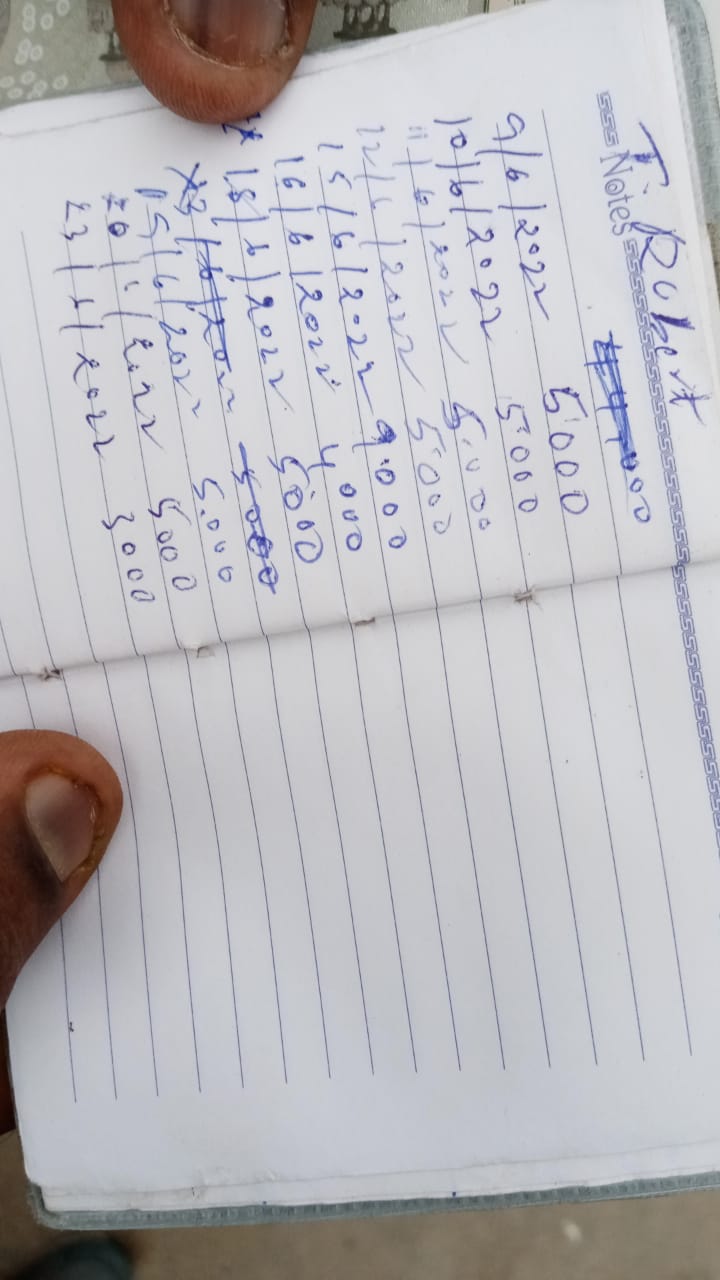 T. Robert
Notes
9/6/2022 5000
10/6/2022 5.000
11/6/2022 5.000
12/6/2022 5000
15/6/2022 9.000
16/6/2022 4.000
18/6/2022 5.000
/6/2022 5000
19/6/2022 5.000
20/6/2022 5000
23/6/2022 3000